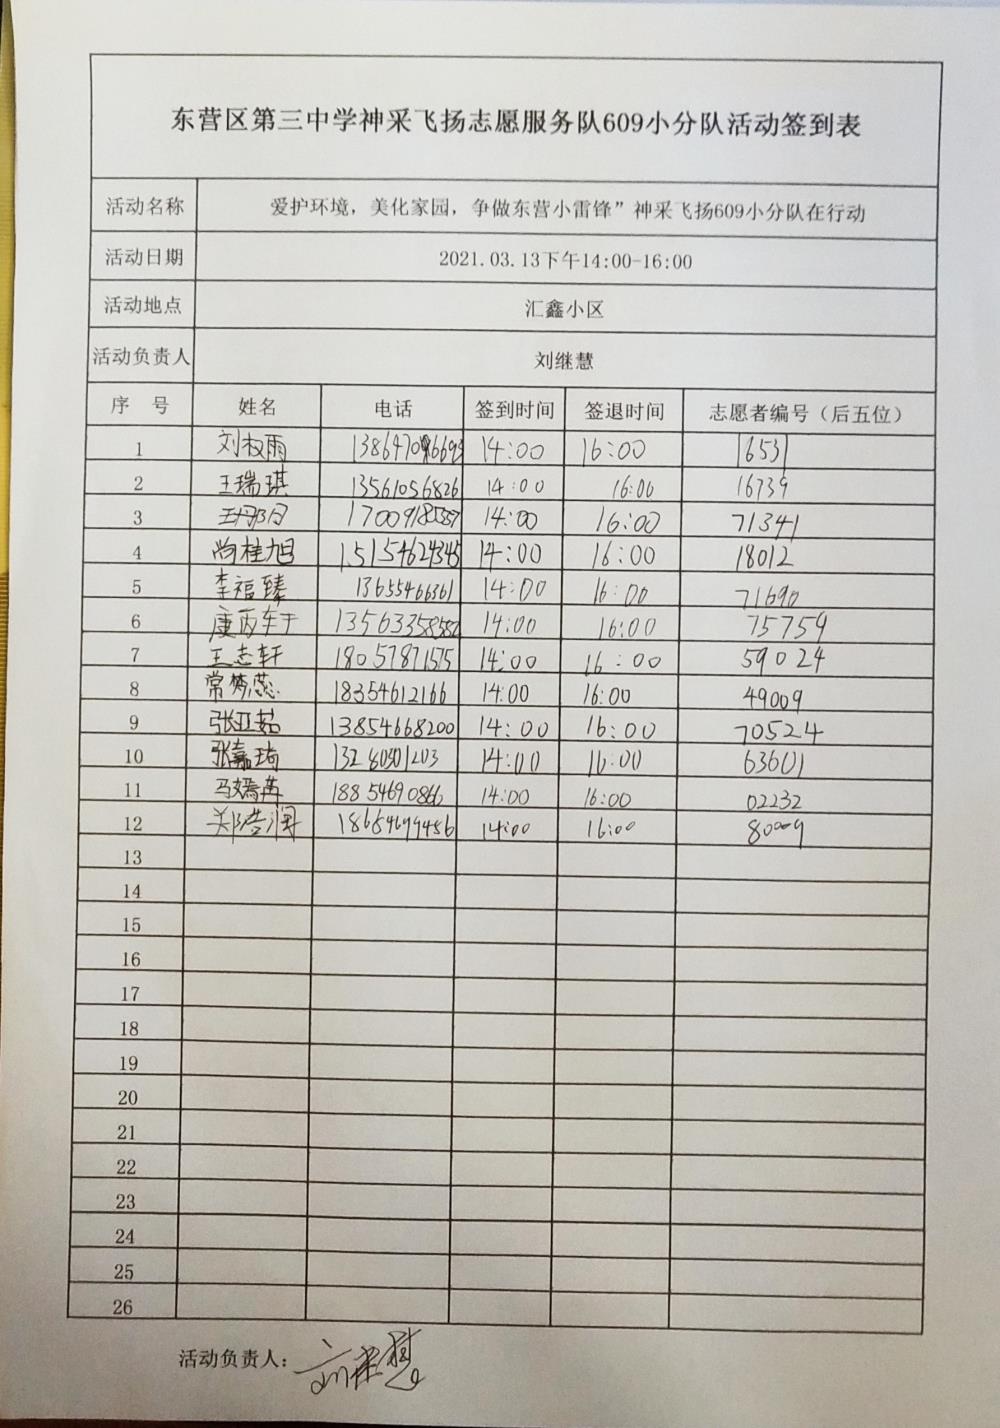 东营区第三中学神采飞扬志愿服务队609小分队活动签到表
活动名称 爱护环境，美化家园，争做东营小雷锋”神采飞扬609小分队在行动
活动日期 2021.03.13下午14:00-16:00
活动地点 汇鑫小区
活动负责人 刘继慧
序 号 姓名 电话 签到时间 签退时间 志愿者编号（后五位）
1 刘权雨 14:00 16:00 16531
2 王瑞琪 13561056826 14:00 16:00 16739
3 14:00 16:00 71341
4 尚桂旭 15154624345 14:00 16:00 18012
5 李福臻 13655466361 14:00 16:00 71690
6 14:00 16:00 75759
7 王志轩 18057871575 14:00 16:00 59024
8 常梦蕊 18354612166 14:00 16:00 49009
9 张亚茹 13854668200 14:00 16:00 70524
10 张嘉琦 14:00 16:00 63601
11 马嫣苒 18854690866 14:00 16:00 02232
12 郑浩润 18654699456 14:00 16:00 80009
13
14
15
16
17
18
19
20
21
22
23
24
25
26
活动负责人： 刘继慧